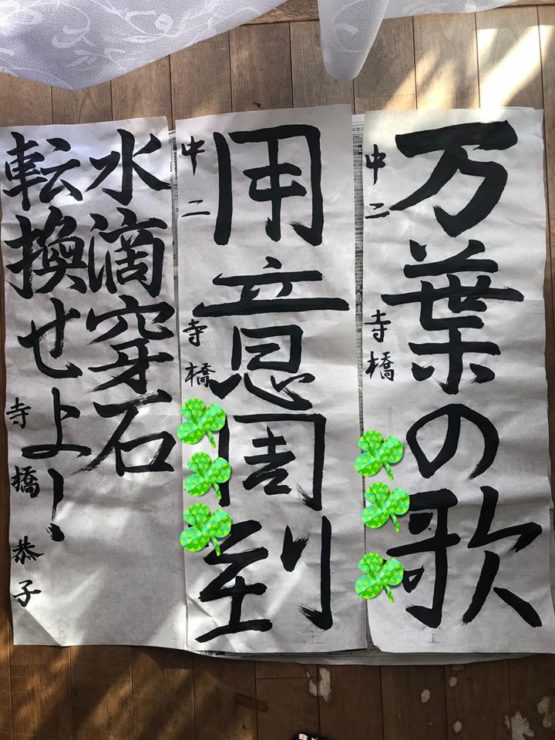 万葉の歌
中二 寺橋
用意周到
中二 寺橋
水滴穿石
転換せよー!
寺橋恭子